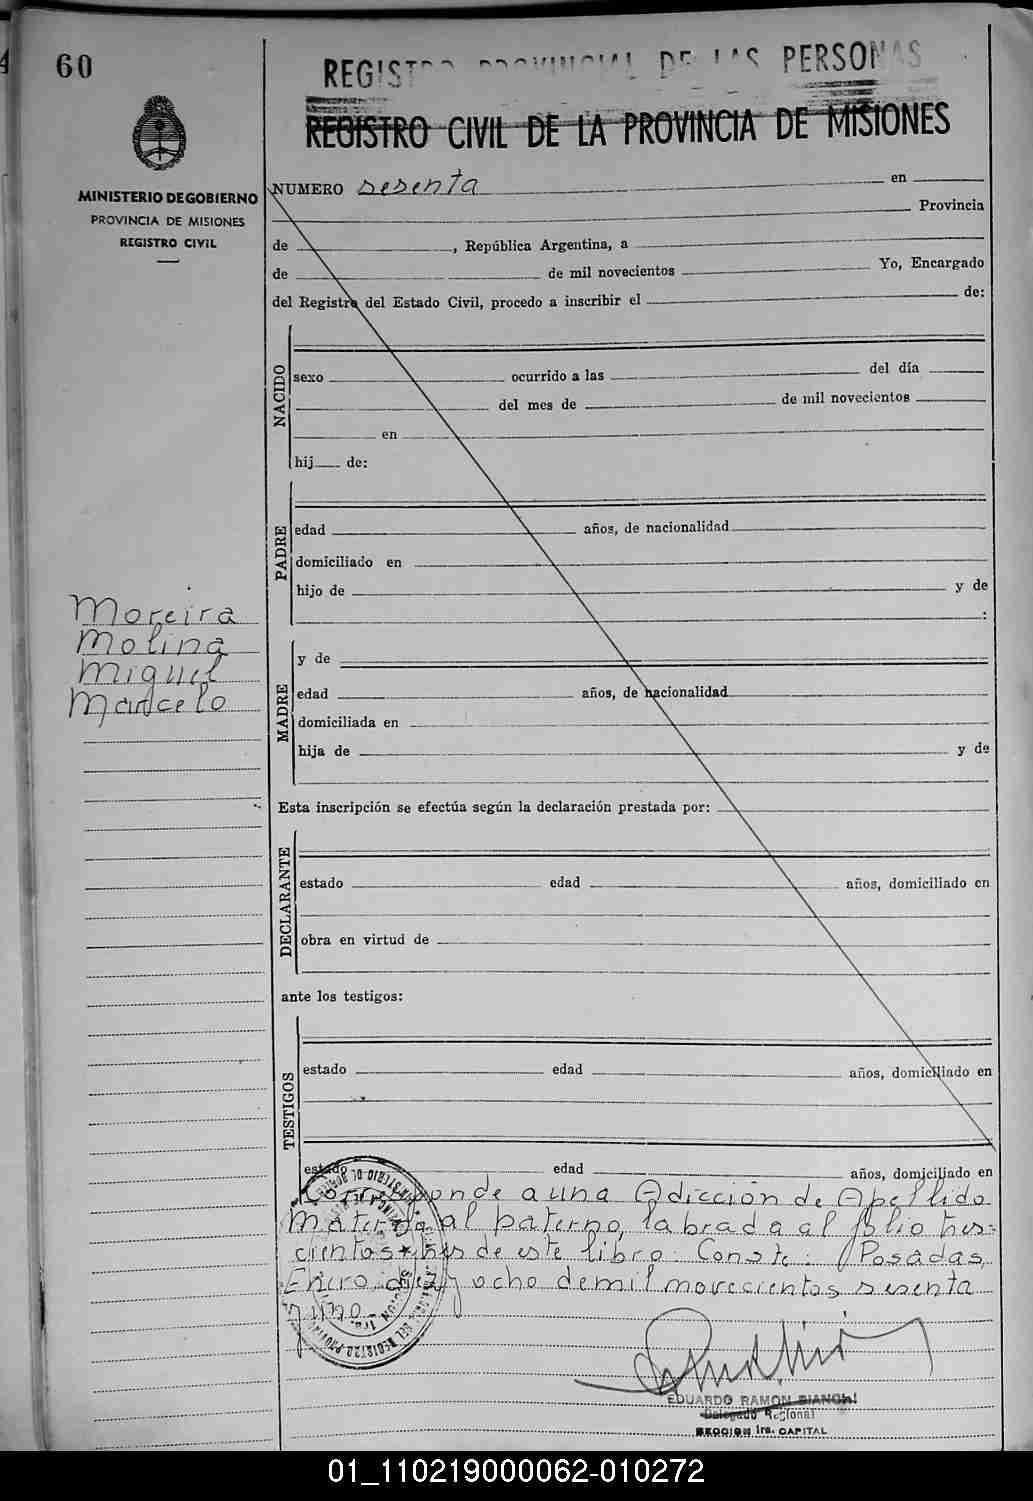 60
REGISTRO PROVINCIAL DE LAS PERSONAS
REGISTRO CIVIL DE LA PROVINCIA DE MISIONES
MINISTERIO DE GOBIERNO
PROVINCIA DE MISIONES
REGISTRO CIVIL
NUMERO sesenta en
Provincia
de , República Argentina, a
de de mil novecientos Yo, Encargado
del Registro del Estado Civil, procedo a inscribir el de:
NACIDO
sexo ocurrido a las del día
del mes de de mil novecientos
en
hij de:
PADRE
edad años, de nacionalidad
domiciliado en
hijo de y de
:
Moreira
Molina
Miguel
Marcelo
MADRE
y de
edad años, de nacionalidad
domiciliada en
hija de y de
Esta inscripción se efectúa según la declaración prestada por:
DECLARANTE
estado edad años, domiciliado en
obra en virtud de
ante los testigos:
TESTIGOS
estado edad años, domiciliado en
estado edad años, domiciliado en
Corresponde a una Adicción de Apellido
Materno al paterno, labrada al folio tres-
cientos tres de este libro. Conste. Posadas,
Enero diez y ocho de mil novecientos sesenta
y uno
EDUARDO RAMON BIANCHI
Delegado Regional
SECCION 1ra. CAPITAL
01_110219000062-010272